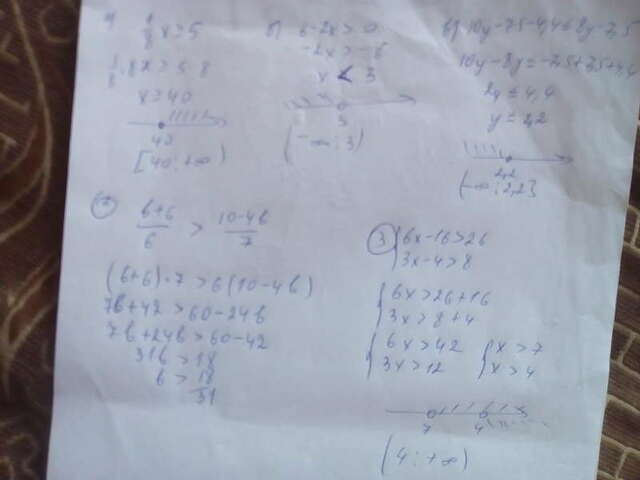 1/8 x ≥ 5
1/8 · 8x ≥ 5 · 8
x ≥ 40
40
[40; +∞)
б) 6-2x > 0
-2x > -6
x < 3
3
(-∞; 3)
10y-7,5-4,4 ≤ 8y-7,5
10y-8y ≤ -7,5+7,5+4,4
2y ≤ 4,4
y ≤ 2,2
2,2
(-∞; 2,2]
② (b+6)/6 > (10-4b)/7
(b+6)·7 > 6(10-4b)
7b+42 > 60-24b
7b+24b > 60-42
31b > 18
b > 18/31
③ { 6x-16>26
{ 3x-4>8
{ 6x>26+16
{ 3x>8+4
{ 6x>42 { x>7
{ 3x>12 { x>4
7 4
(4; +∞)